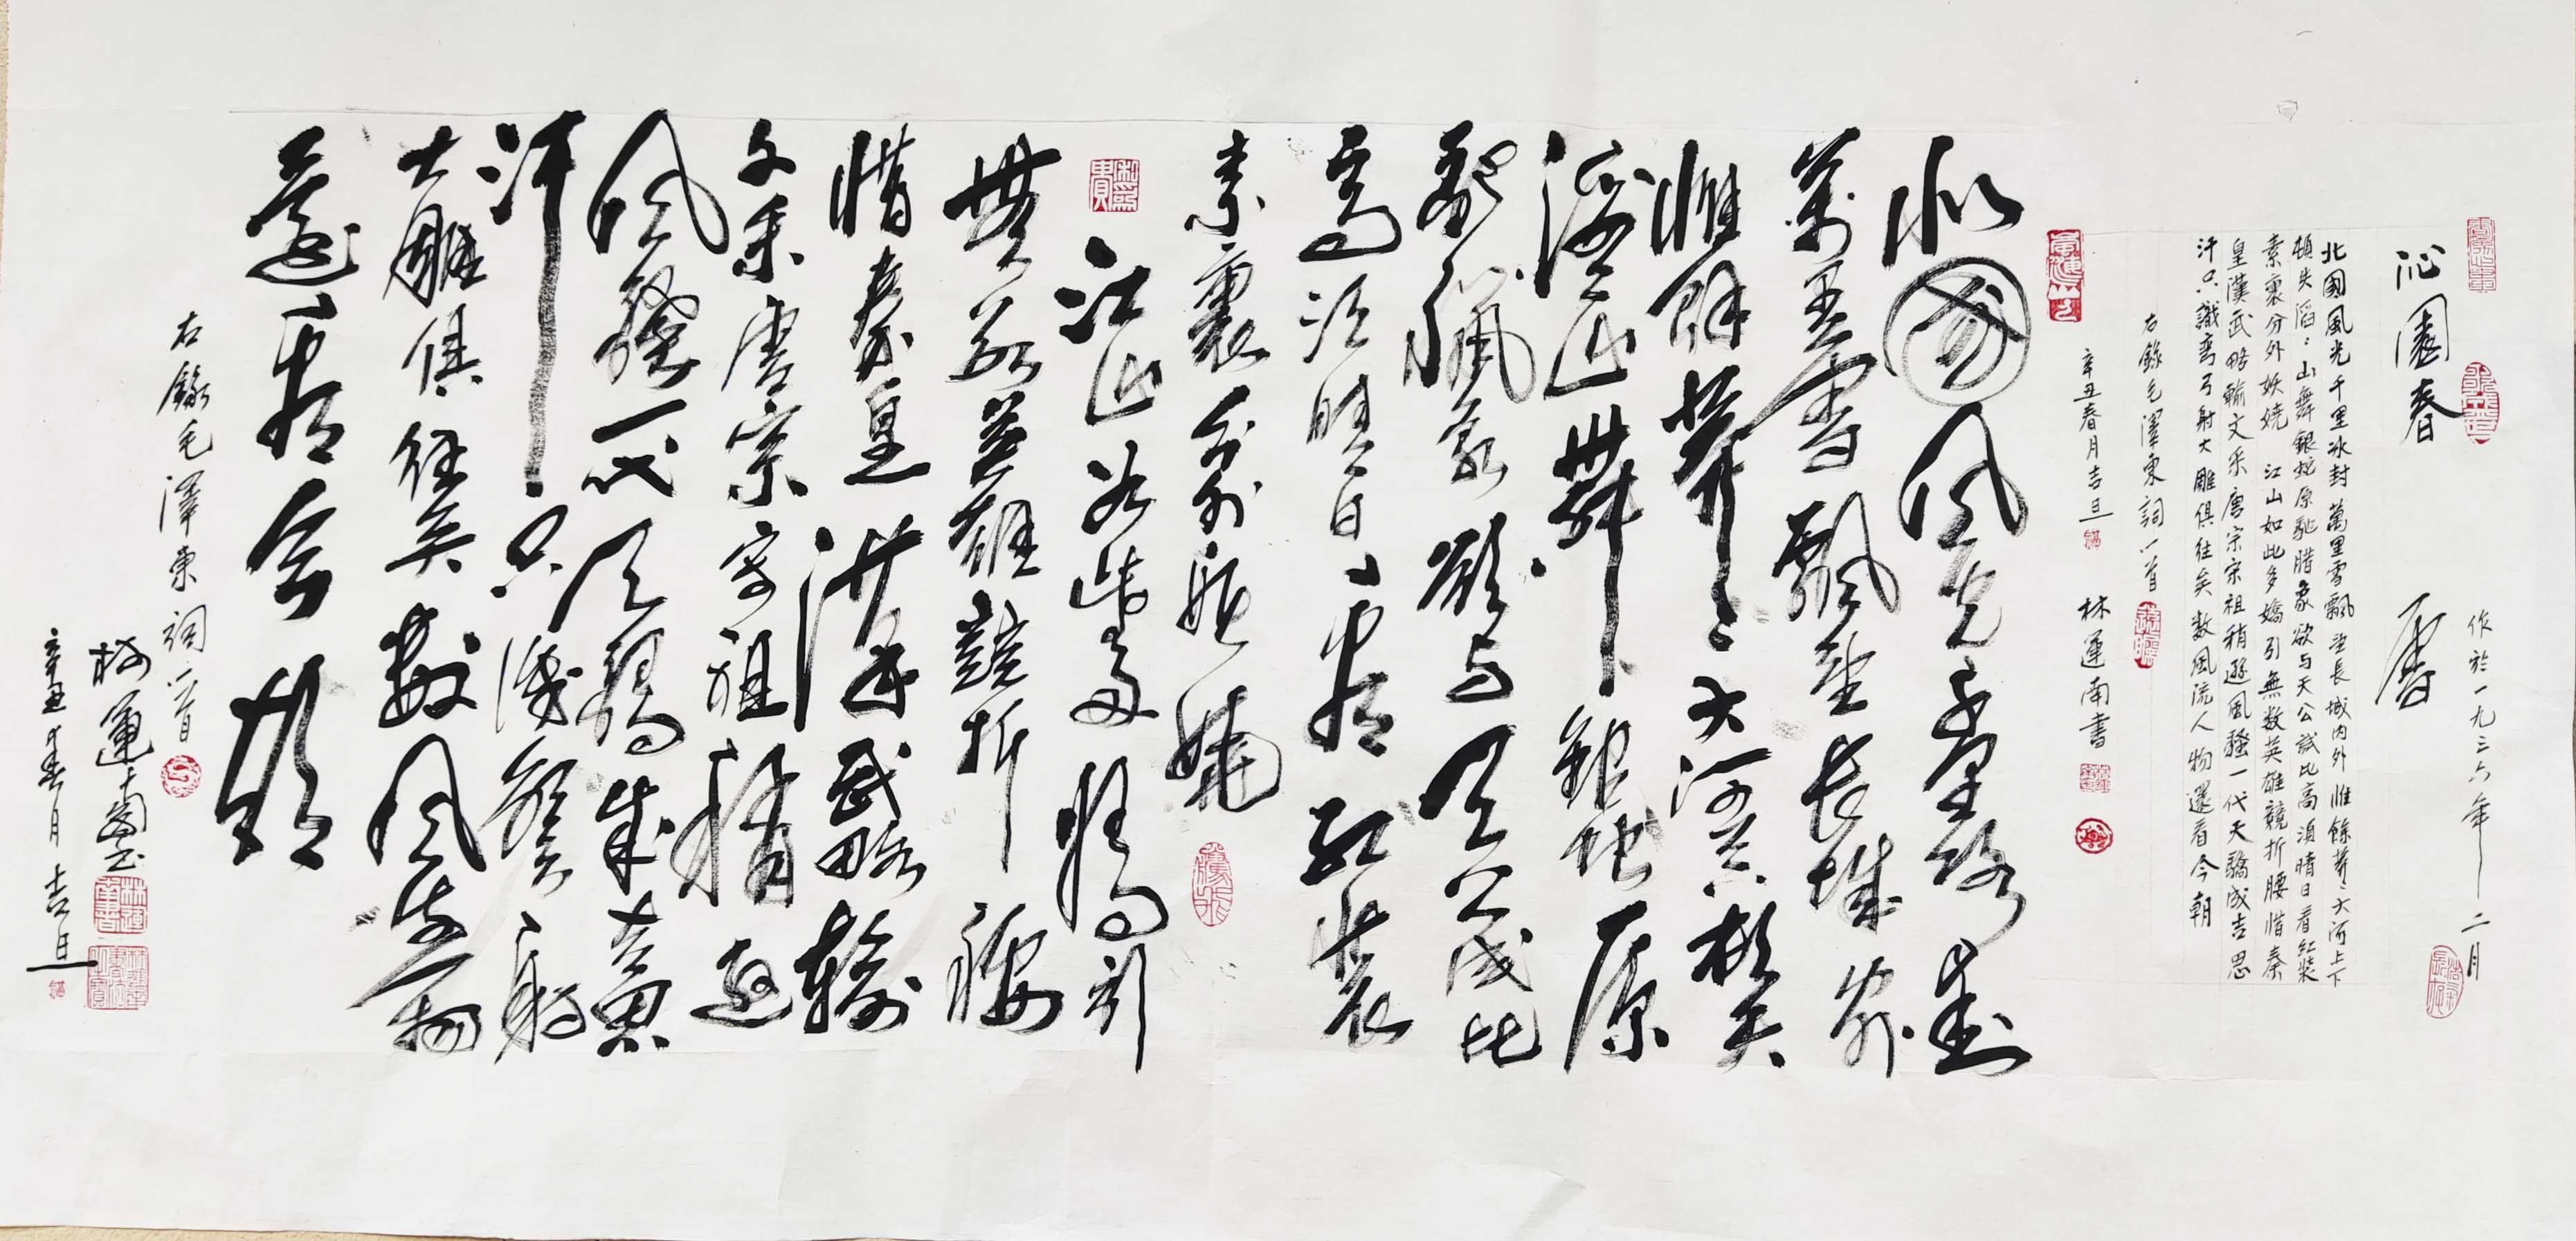 沁園春 雪
作於一九三六年二月
北國風光千里冰封萬里雪飄望長城內外惟餘莽〻大河上下
頓失滔〻山舞銀蛇原馳腊象欲与天公試比高須晴日看红裝
素裹分外妖嬈 江山如此多嬌引無数英雄競折腰惜秦
皇漢武略輸文采唐宗宋祖稍遜風騷一代天驕成吉思
汗只識彎弓射大雕俱往矣数風流人物還看今朝
右錄毛澤東詞一首
辛丑春月吉旦 林運南書
北國風光千里冰封
萬里雪飄望長城內外
惟餘莽〻大河上下頓失
滔〻山舞銀蛇原
馳腊象欲与天公試比
高須晴日看红裝
素裹分外妖嬈
江山如此多嬌引
無数英雄競折腰
惜秦皇漢武略輸
文采唐宗宋祖稍遜
風騷一代天驕成吉思
汗只識彎弓射
大雕俱往矣數風流人物
還看今朝
右錄毛澤東詞一首
林運南書
辛丑年春月吉旦